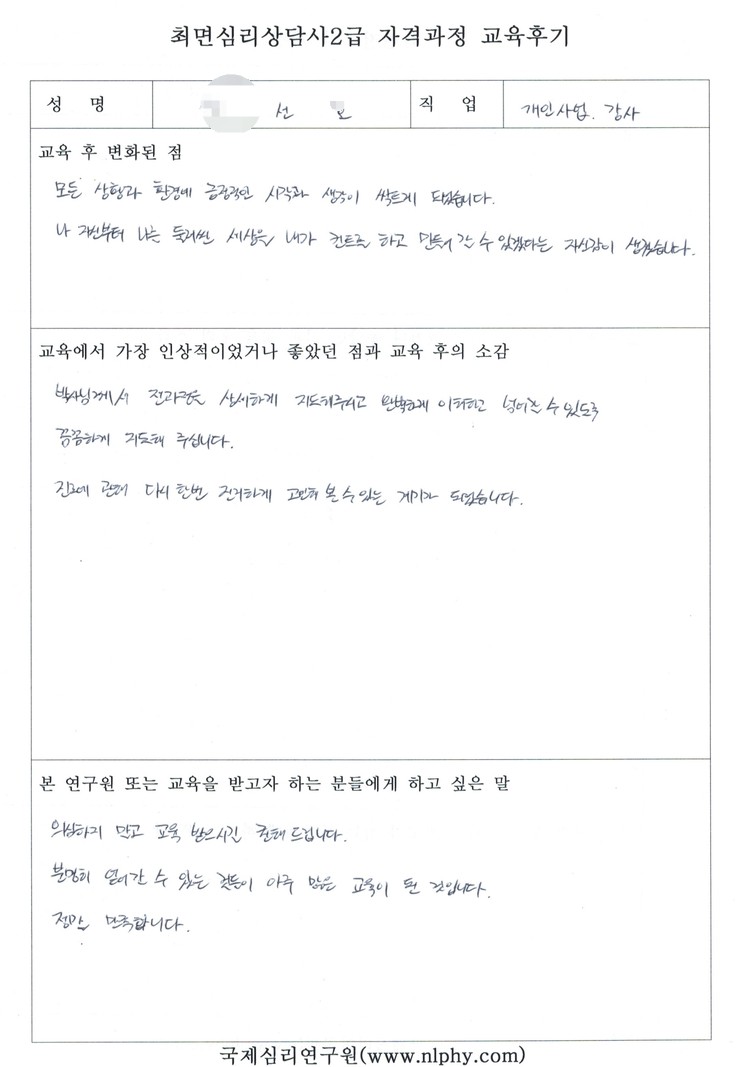 최면심리상담사2급 자격과정 교육후기
성 명 선 직 업 개인사업. 강사
교육 후 변화된 점
모든 상황과 환경에 긍정적인 시각과 생각이 싹트게 되었습니다.
나 자신부터 나를 둘러싼 세상을 내가 컨트롤 하고 만들어 갈 수 있겠다는 자신감이 생겼습니다.
교육에서 가장 인상적이었거나 좋았던 점과 교육 후의 소감
박사님께서 전과정을 상세하게 지도해주시고 완벽하게 이해하고 넘어갈 수 있도록
꼼꼼하게 지도해 주십니다.
진로에 관해 다시 한번 진지하게 고민해 볼 수 있는 계기가 되었습니다.
본 연구원 또는 교육을 받고자 하는 분들에게 하고 싶은 말
의심하지 말고 교육 받으시길 추천해 드립니다.
분명히 얻어갈 수 있는 것들이 아주 많은 교육이 될 것입니다.
정말 만족합니다.
국제심리연구원(www.nlphy.com)